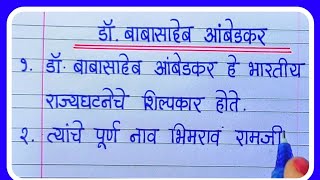 डॉ. बाबासाहेब आंबेडकर
१. डॉ. बाबासाहेब आंबेडकर हे भारतीय
राज्यघटनेचे शिल्पकार होते.
२. त्यांचे पूर्ण नाव भिमराव रामजी